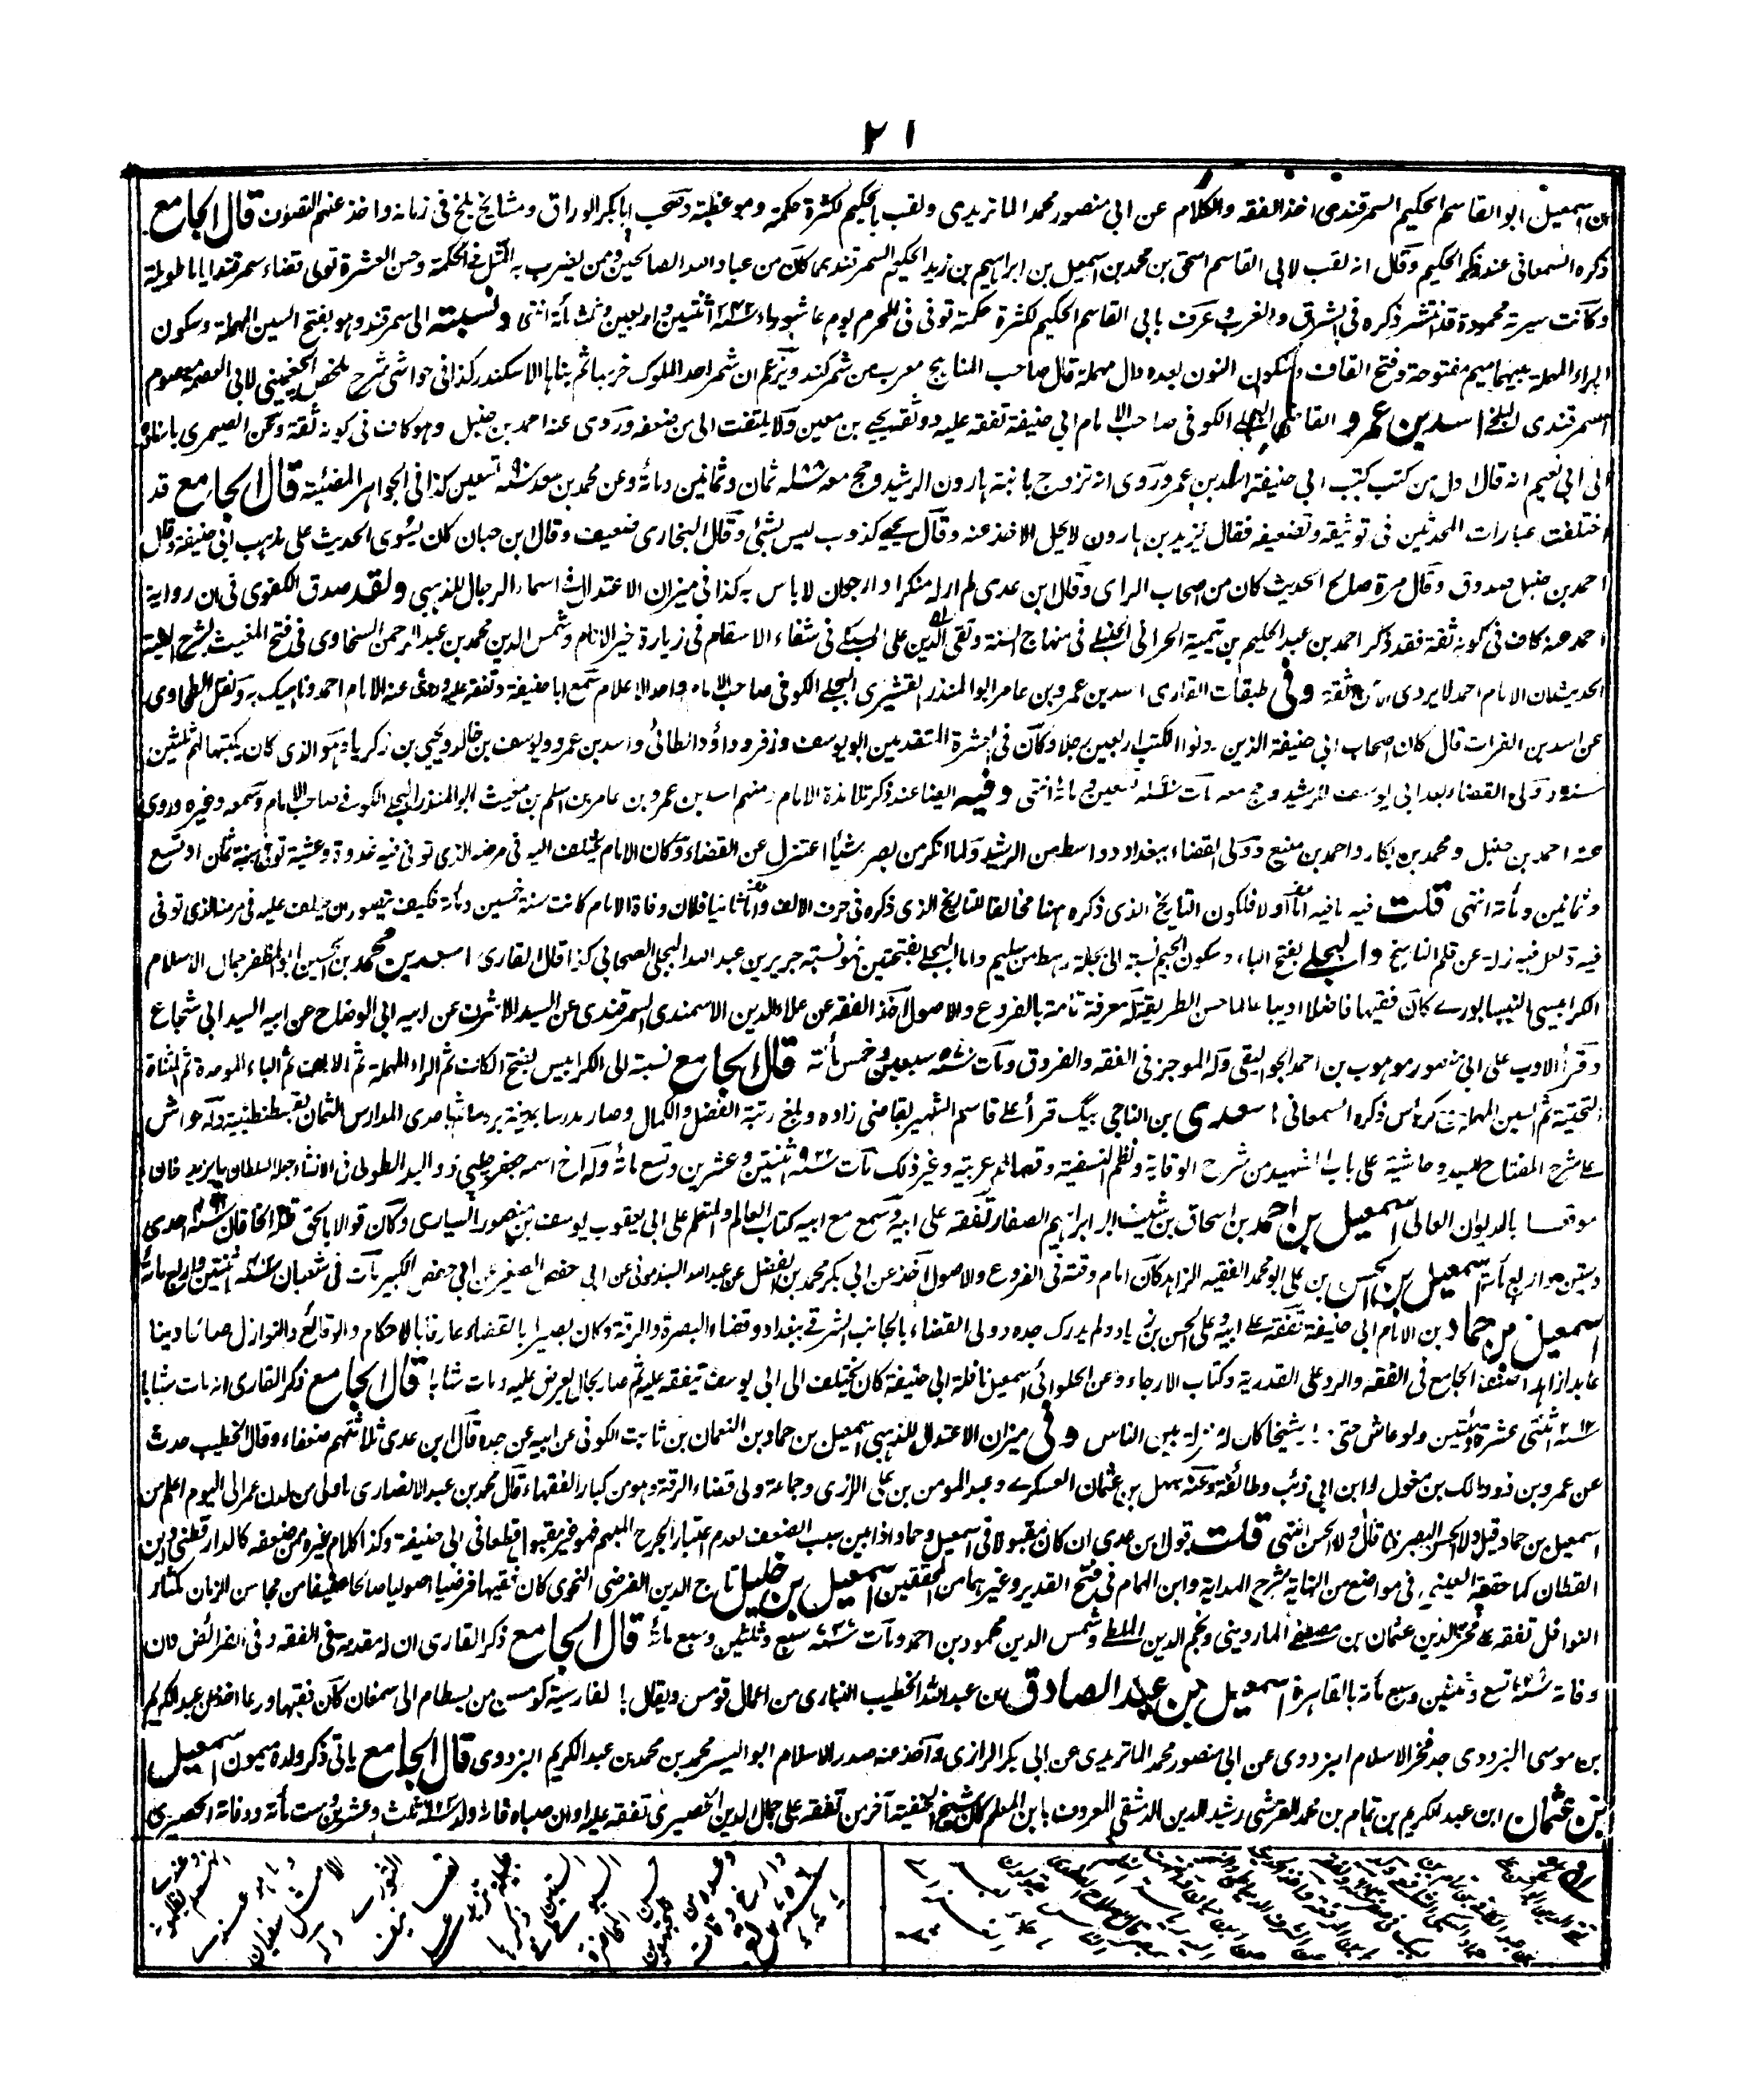 ٢١
بن اسمعيل ابو القاسم الحكيم السمرقندى اخذ الفقه والكلام عن ابى منصور محمد الماتريدى ولقب بالحكيم لكثرة حكمته وموعظته وصحب ابا بكر الوراق ومشايخ بلخ فى زمانه واخذ عنهم التصوف قال الجامع
ذكره السمعانى عند ذكر الحكيم وقال انه لقب لابى القاسم اسحق بن محمد بن اسمعيل بن ابراهيم بن زيد الحكيم السمرقندى كان من عباد الله الصالحين ومن يضرب به المثل فى الحكمة وحسن العشرة تولى قضاء سمرقند اياما طويلة
وكانت سيرته محمودة قد انتشر ذكره فى الشرق والغرب وعرف بابى القاسم الحكيم لكثرة حكمته توفى فى المحرم يوم عاشوراء سنة ٣٤٢ اثنتين واربعين وثلثمائة انتهى ونسبته الى سمرقند وهو بفتح السين المهملة وسكون
الراء المهملة بينهما ميم مفتوحة وفتح القاف وسكون النون بعده دال مهملة قال صاحب المناهج معرب من شمركند ويزعم ان شمر احد الملوك خربها ثم بناها الاسكندر كذا فى حواشى شرح ملخص الجغمينى لابى العصمة معصوم
السمرقندى البلخى اسد بن عمرو القاضى البجلى الكوفى صاحب الامام ابى حنيفة تفقه عليه ووثقه يحيى بن معين ولا يلتفت الى من ضعفه وروى عنه احمد بن حنبل وهو كاف فى كونه ثقة وعن الصيمرى باسناده
الى ابى نعيم انه قال اول من كتب كتب ابى حنيفة اسد بن عمر وروى انه تزوج بابنة هارون الرشيد وحج معه سنة ١٨٨ ثمان وثمانين ومائة وعن محمد بن سعد سنة ١٩٠ تسعين كذا فى الجواهر المضيئة قال الجامع قد
اختلفت عبارات المحدثين فى توثيقه وتضعيفه فقال يزيد بن هارون لا يحل الاخذ عنه وقال يحيى كذوب ليس بشئ وقال البخارى ضعيف وقال ابن حبان كان يسوى الحديث على مذهب ابى حنيفة وقال
احمد بن حنبل صدوق وقال مرة صالح الحديث كان من اصحاب الراى وقال ابن عدى لم ار له منكرا وارجو ان لا باس به كذا فى ميزان الاعتدال فى اسماء الرجال للذهبى ولقد صدق الكفوى فى ان رواية
احمد عنه كاف فى كونه ثقة فقد ذكر احمد بن عبد الحليم بن تيمية الحرانى الحنبلى فى منهاج السنة وتقى الدين على السبكى فى شفاء الاسقام فى زيارة خير الانام وشمس الدين محمد بن عبد الرحمن السخاوى فى فتح المغيث بشرح الفية
الحديث ان الامام احمد لا يروى الا عن ثقة وفى طبقات القارى اسد بن عمرو بن عامر ابو المنذر القشيرى البجلى الكوفى صاحب الامام واحد الاعلام سمع ابا حنيفة وتفقه عليه وروى عنه الامام احمد وناهيك به ونقل الطحاوى
عن اسد بن الفرات قال كان اصحاب ابى حنيفة الذين دونوا الكتب اربعين رجلا وكان فى العشرة المتقدمين ابو يوسف وزفر وداؤد الطائى واسد بن عمرو ويوسف بن خالد ويحيى بن زكريا وهو الذى كان يكتبها لهم ثلثين
سنة وولى القضاء بعد ابى يوسف للرشيد وحج معه مات سنة ١٩٠ تسعين ومائة انتهى وفيه ايضا عند ذكر تلامذة الامام ومنهم اسد بن عمرو بن عامر بن اسلم بن مغيث ابو المنذر البجلى الكوفى صاحب الامام وسمعه وغيره وروى
عنه احمد بن حنبل ومحمد بن بكار واحمد بن منيع وولى القضاء ببغداد وواسط من الرشيد ولما انكر من بصره شيئا اعتزل عن القضاء وكان الامام يختلف اليه فى مرضه الذى توفى فيه غدوة وعشية توفى سنة ثمان او تسع
وثمانين ومائة انتهى قلت فيه ما فيه اما اولا فلكون التاريخ الذى ذكره ههنا مخالفا للتاريخ الذى ذكره فى حرف الالف واما ثانيا فلان وفاة الامام كانت سنة خمسين ومائة فكيف يتصور من يختلف عليه فى مرضه الذى توفى
فيه ولعل فيه زلة عن قلم الناسخ والبجلى بفتح الباء وسكون الجيم نسبة الى بجلة رهط من سليم واما البجلى بفتحتين فهو نسبة جرير بن عبد الله البجلى الصحابى كذا قال القارى اسعد بن محمد بن الحسين ابو المظفر جمال الاسلام
الكرابيسى النيسابورى كان فقيها فاضلا اديبا عالما حسن الطريقة له معرفة تامة بالفروع والاصول اخذ الفقه عن علاء الدين الاسمندى السمرقندى عن السيد الاشرف عن ابيه ابى الوضاح عن ابيه السيد ابى شجاع
وقرأ الادب على ابى منصور موهوب بن احمد الجواليقى وله الموجز فى الفقه والفروق ومات سنة ٥٧٠ سبعين وخمس مائة قال الجامع نسبة الى الكرابيس بفتح الكاف ثم الراء المهملة ثم الالف ثم الباء الموحدة ثم المثناة
التحتية ثم السين المهملة ذكره السمعانى اسعدى بن الناجى بيگ قرأ على قاسم الشهير بقاضى زاده وبلغ رتبة الفضل والكمال وصار مدرسا بمدينة بروسا ثم باحدى المدارس الثمان بقسطنطينية وله حواش
على شرح المفتاح للسيد وحاشية على باب الشهيد من شرح الوقاية ونظم النسفية وقصائد عربية وغير ذلك مات سنة ٩٢٢ ثنتين وعشرين وتسع مائة وله اخ اسمه جعفر چلپى ذو اليد الطولى فى الانشاء جعله السلطان بايزيد خان
موقعا بالديوان العالى اسمعيل بن احمد بن اسحاق بن شيث ابو ابراهيم الصفار تفقه على ابيه وسمع مع ابيه كتاب العالم والمتعلم على ابى يعقوب يوسف بن منصور السيارى وكان قوالا بالحق قتله الخاقان سنة ٤٦١ احدى
وستين واربع مائة اسمعيل بن الحسن بن على ابو محمد الفقيه الزاهد كان امام وقته فى الفروع والاصول اخذ عن ابى بكر محمد بن الفضل عن عبد الله السبذمونى عن ابى حفص الصغير عن ابى حفص الكبير مات فى شعبان سنة ٤٠٢ ثنتين واربع مائة
اسمعيل بن حماد بن الامام ابى حنيفة تفقه على ابيه وعلى الحسن بن زياد ولم يدرك جده وولى القضاء بالجانب الشرقى ببغداد وقضاء البصرة والرقة وكان بصيرا بالقضاء عارفا بالاحكام والوقائع والنوازل صالحا دينا
عابدا زاهدا صنف الجامع فى الفقه والرد على القدرية وكتاب الارجاء وعن الحلوائى اسمعيل نافلة ابى حنيفة كان يختلف الى ابى يوسف يتفقه عليه ثم صار بحال يعرض عليه ومات شابا قال الجامع ذكر القارى انه مات شابا
سنة ٢١٢ اثنتى عشرة ومئتين ولو عاش حتى شيخا كان له منزلة بين الناس وفى ميزان الاعتدال للذهبى اسمعيل بن حماد بن النعمان بن ثابت الكوفى عن ابيه عن جده قال ابن عدى ثلاثتهم ضعفاء وقال الخطيب حدث
عن عمرو بن ذر ومالك بن مغول وابن ابى ذئب وطائفة وعنه سهل بن عثمان العسكرى وعبد المومن بن على الرازى وجماعة ولى قضاء الرقة وهو من كبار الفقهاء قال محمد بن عبد الله الانصارى ما ولى من لدن عمر الى اليوم اعلم من
اسمعيل بن حماد قيل ولا الحسن البصرى قال ولا الحسن انتهى قلت قول ابن عدى ان كان مقبولا فى اسمعيل وحماد اذا بين سبب الضعف لعدم اعتبار الجرح المبهم فهو غير مقبول قطعا فى ابى حنيفة وكذا كلام غيره ممن ضعفه كالدارقطنى وابن
القطان كما حققه العينى فى مواضع من البناية شرح الهداية وابن الهمام فى فتح القدير وغيرهما من المحققين اسمعيل بن خليل تاج الدين الفرضى النحوى كان فقيها فرضيا اصوليا صالحا عفيفا من محاسن الزمان كثير
النوافل تفقه على فخر الدين عثمان بن مصطفى الماردينى ونجم الدين الملطى وشمس الدين محمود بن احمد ومات سنة ٧٣٧ سبع وثلثين وسبع مائة قال الجامع ذكر القارى ان له مقدمة فى الفقه وفى الفرائض وان
وفاته سنة ٧٣٩ تسع وثلثين وسبع مائة بالقاهرة اسمعيل بن عبد الصادق بن عبد الله الخطيب البيارى من اعمال قومس ويقال لها بالفارسية كومس من بسطام الى سمنان كان فقيها ورعا اخذ عن عبد الكريم
بن موسى البزدوى جد فخر الاسلام البزدوى عن ابى منصور محمد الماتريدى عن ابى بكر الرازى واخذ عنه صدر الاسلام ابو اليسر محمد بن محمد بن عبد الكريم البزدوى قال الجامع ياتى ذكر ولده ميمون اسمعيل
ابن عثمان ابن عبد الكريم بن تمام بن محمد القرشى رشيد الدين الدمشقى المعروف بابن المعلم كان شيخ الحنفية آخر من تفقه على جمال الدين الحصيرى تفقه عليه اوان صباه فانه ولد سنة ٦٢٣ ثلث وعشرين وست مائة ووفاة الحصيرى